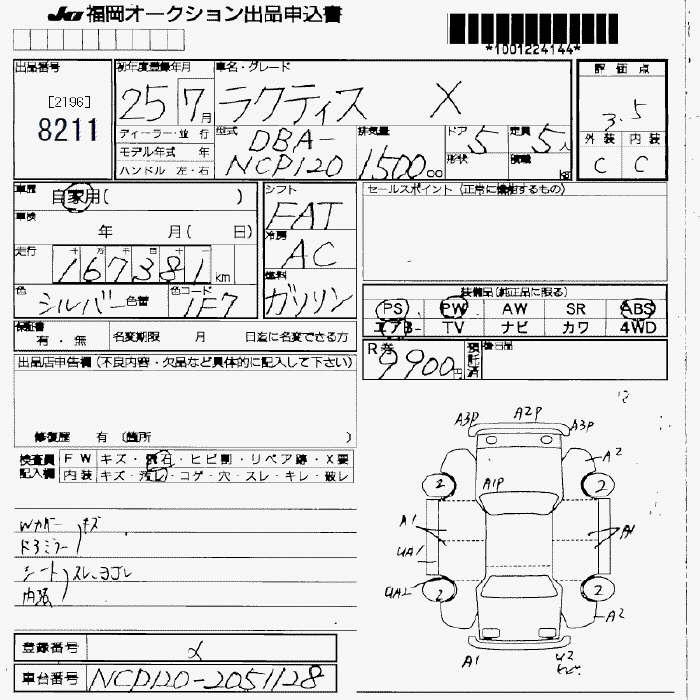 JU 福岡オークション出品申込書
*1001224144*
出品番号
[2196]
8211
初年度登録年月
25 7月
ディーラー・並 行
モデル年式 年
ハンドル 左・右
車名・グレード
ラクティス X
型式
DBA-
NCP120
排気量
1500cc
ドア 5
形状
定員 5人
積載 kg
評価点
3.5
外装 内装
C C
車歴
自家用( )
車検
年 月( 日)
走行
十 万 千 百 十 一
167381km
色
シルバー 色替
色コード
1F7
シフト
FAT
冷房
AC
燃料
ガソリン
セールスポイント (正常に機能するもの)
装備品(純正品に限る)
PS PW AW SR ABS
エアB TV ナビ カワ 4WD
保証書
有・無
名変期限 月 日迄に名変できる方
R券
9900円
預託済
後日品
出品店申告欄 (不良内容・欠品など具体的に記入して下さい)
修復歴 有 (箇所 )
検査員
記入欄
FW キズ・飛石・ヒビ割・リペア跡・X要
内装 キズ・汚レ・コゲ・穴・スレ・キレ・破レ
Wカバー
ドアミラー
キズ
シート
内張
スレ、ヨゴレ
登録番号
車台番号 NCP120-2051128
A3P A2P A3P
A2
2 2
A1P
A1 A1
UA1
UA2
2 2
A2
A1
U2